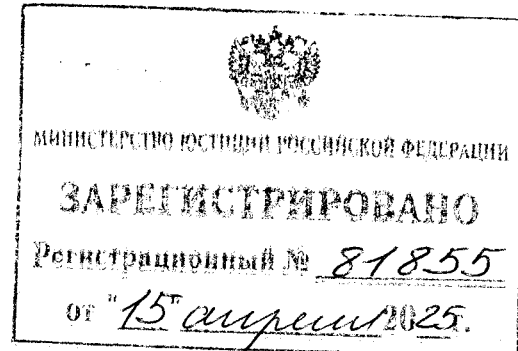 МИНИСТЕРСТВО ЮСТИЦИИ РОССИЙСКОЙ ФЕДЕРАЦИИ
ЗАРЕГИСТРИРОВАНО
Регистрационный № 81855
от "15" апреля 2025г.